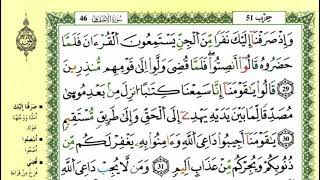 حزب 51
سورة الأحقاف
46
وَإِذْ صَرَفْنَا إِلَيْكَ نَفَرًا مِّنَ ٱلْجِنِّ يَسْتَمِعُونَ ٱلْقُرْءَانَ فَلَمَّا
حَضَرُوهُ قَالُوٓا۟ أَنصِتُوا۟ فَلَمَّا قُضِىَ وَلَّوْا۟ إِلَىٰ قَوْمِهِم مُّنذِرِينَ
29 قَالُوا۟ يَٰقَوْمَنَآ إِنَّا سَمِعْنَا كِتَٰبًا أُنزِلَ مِنۢ بَعْدِ مُوسَىٰ
مُصَدِّقًا لِّمَا بَيْنَ يَدَيْهِ يَهْدِىٓ إِلَى ٱلْحَقِّ وَإِلَىٰ طَرِيقٍ مُّسْتَقِيمٍ
30 يَٰقَوْمَنَآ أَجِيبُوا۟ دَاعِىَ ٱللَّهِ وَءَامِنُوا۟ بِهِۦ يَغْفِرْ لَكُم مِّن
ذُنُوبِكُمْ وَيُجِرْكُم مِّنْ عَذَابٍ أَلِيمٍ 31 وَمَن لَّا يُجِبْ دَاعِىَ ٱللَّهِ
صَرَفْنَا إِلَيْكَ
أنصتوا
قضي